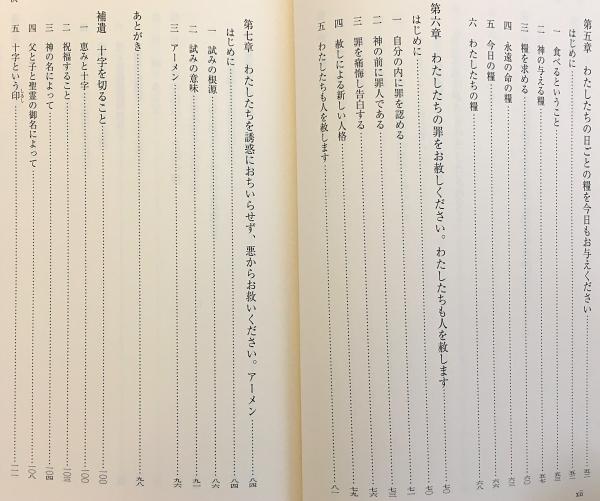 第五章 わたしたちの日ごとの糧を今日もお与えください……五二
はじめに……五二
一 食べるということ……五三
二 神の与える糧……
三 糧を求める……五七
四 永遠の命の糧……
五 今日の糧……
六 わたしたちの糧……
第六章 わたしたちの罪をお赦しください。わたしたちも人を赦します……七〇
はじめに……七〇
一 自分の内に罪を認める……
二 神の前に罪人である……七三
三 罪を痛悔し告白する……
四 赦しによる新しい人格……七九
五 わたしたちも人を赦します……八一
xii
第七章 わたしたちを誘惑におちいらせず、悪からお救いください。アーメン……八四
はじめに……八四
一 試みの根源……八六
二 試みの意味……九一
三 アーメン……九六
あとがき……九八
補遺 十字を切ること……一〇〇
一 恵みと十字……一〇〇
二 祝福すること……一〇三
三 神の名によって……一〇四
四 父と子と聖霊の御名によって……一〇八
五 十字という印……一一一